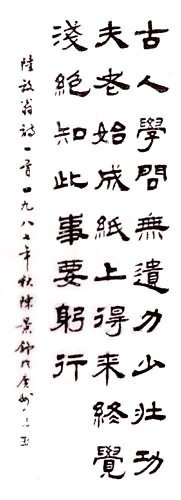 古人學問無遺力少壮功
夫老始成紙上得来終覺
淺絕知此事要躬行
陸放翁詩一首一九八七年秋陳景舒